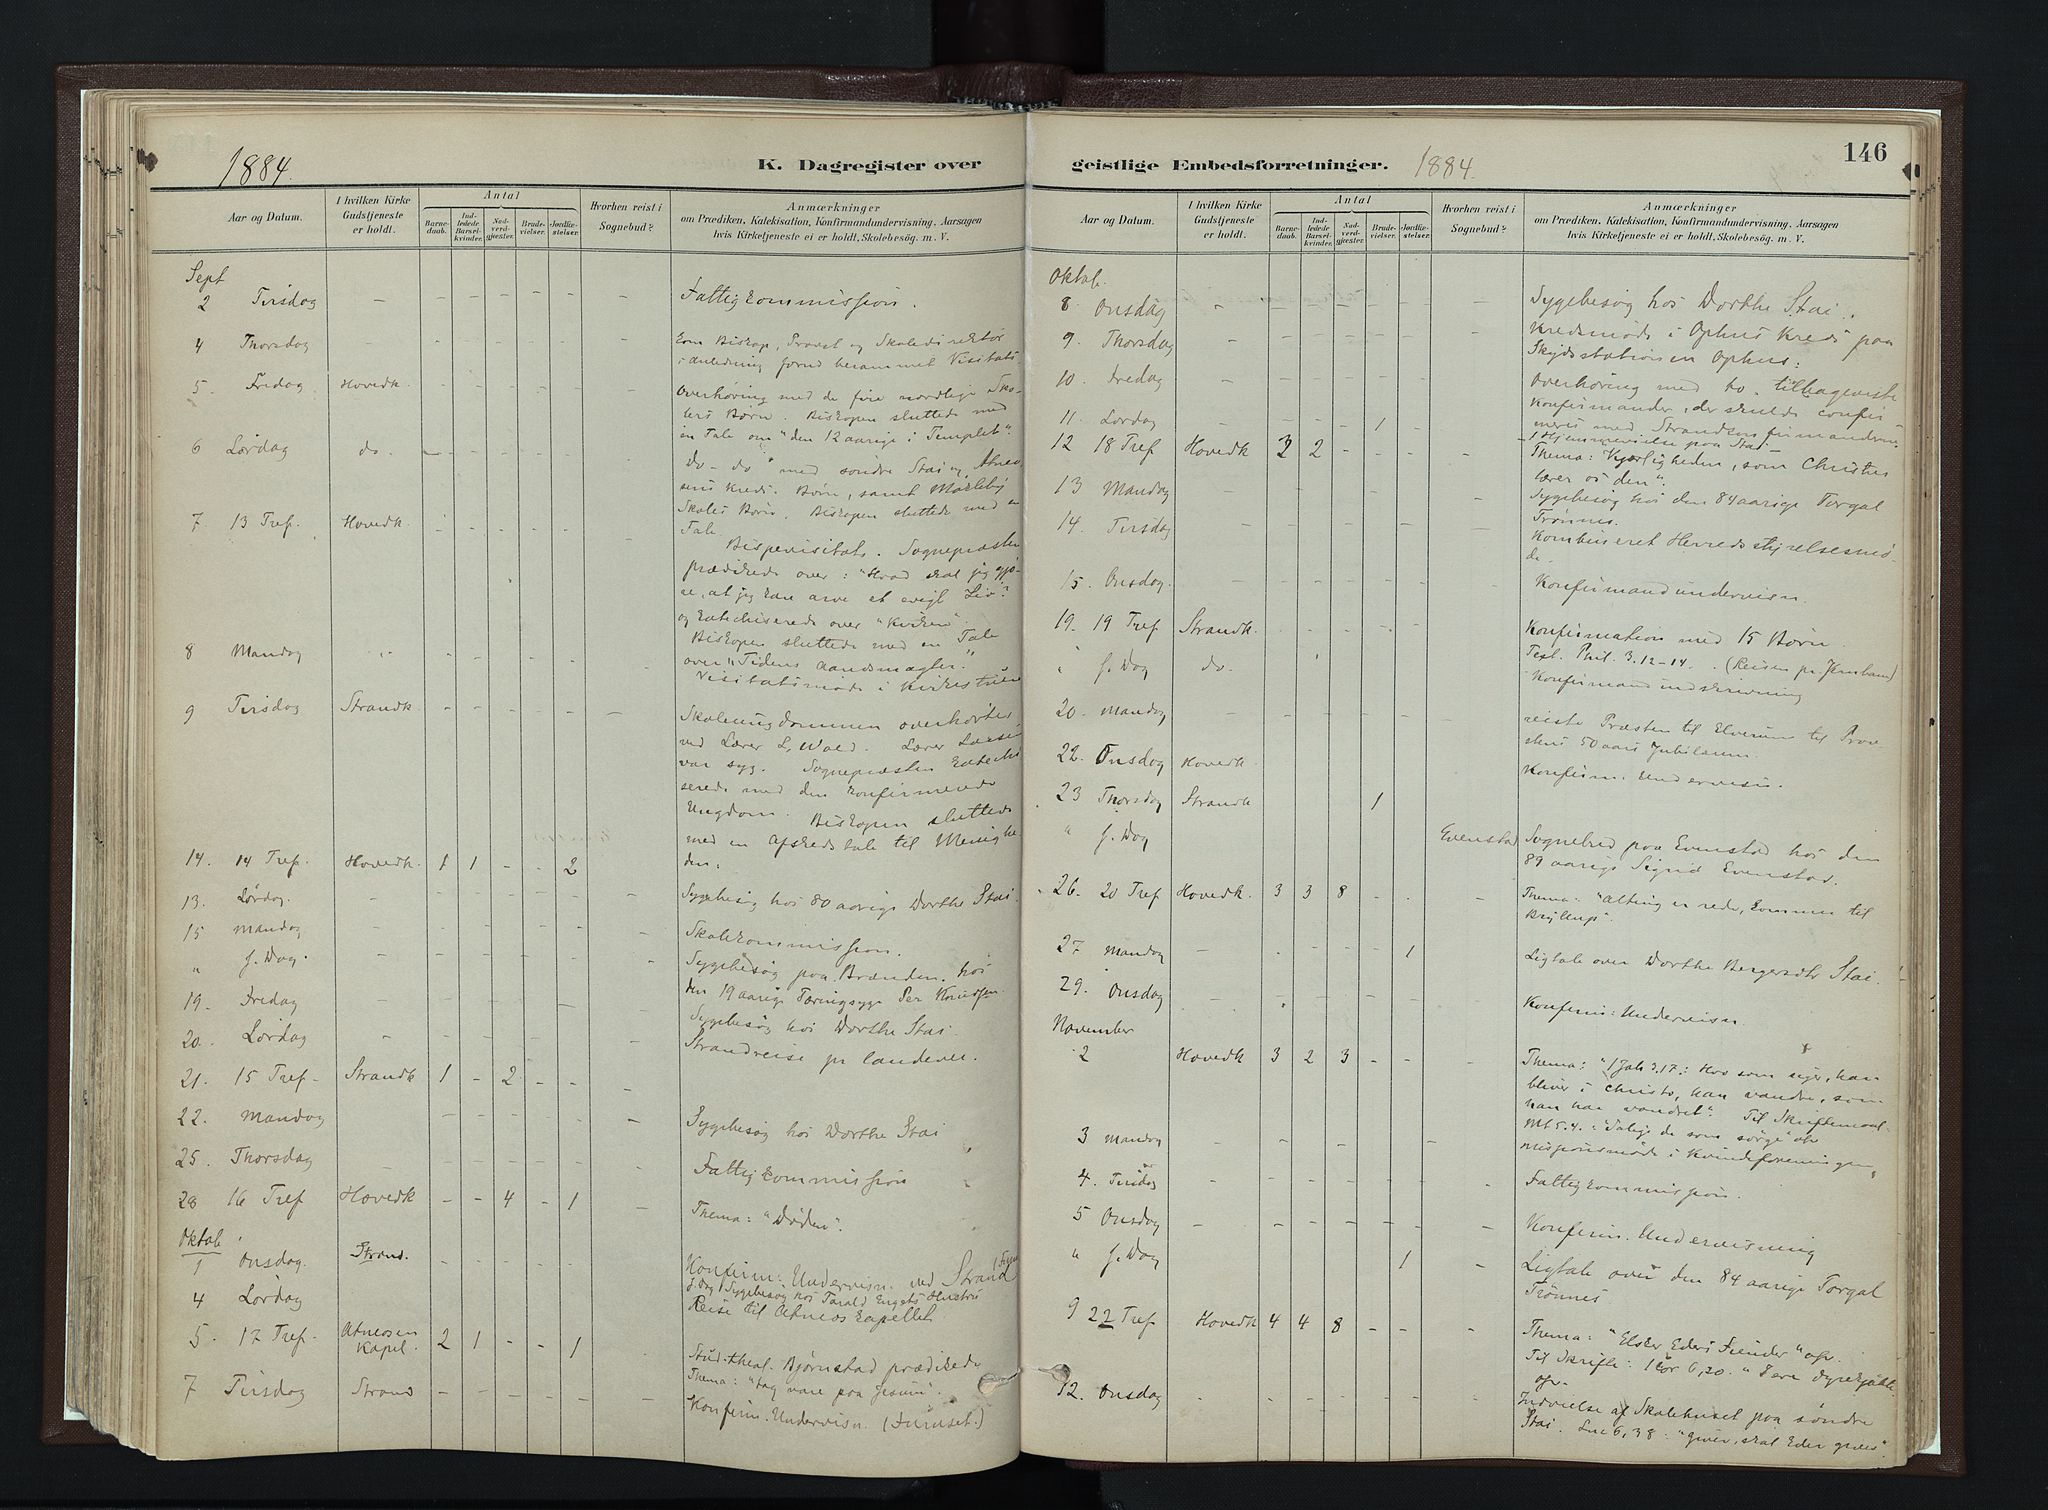 1884.
K. Dagregister over
Aar og Datum.
I hvilken Kirke Gudstjeneste er holdt.
Antal
Barnedaab.
Indledede Barselkvinder.
Nadverdgjester.
Brudevielser.
Jordfæstelser.
Hvorhen reist i Sognebud?
Anmærkninger
om Prædiken, Katekisation, Konfirmandundervisning, Aarsagen
hvis Kirketjeneste ei er holdt, Skolebesøg. m. V.
Sept
2 Tirsdag - - - - - - - Fattigkommission.
4 Thorsdag - - - - - - - Kom Biskop, Provst og Skoledirektør
i anledning forud berammet Visitats
5 Fredag Hovedk. - - - - - - Overhøring med de fire nordlige Sko-
lers Børn. Biskopen sluttede med
en Tale om "den 12 aarige i Templet".
6 Lørdag do. - - - - - - Do - do med søndre Stai og Atneo
sens Kreds. Børn, samt Møklebÿ
Skoles Børn. Biskopen sluttede med en
Tale.
7 13 Tref. Hovedk. - - - - - -
Bispevisitats. Sognepræsten
prædikede over: "Hvad skal jeg gjø-
re, at jeg kan arve et evigt Liv?"
og katechiserede over "Kirken"
Biskopen sluttede med en Tale
over "Tidens Aandsmagter."
8 Mandag " - - - - - - Visitatsmøde i Kirkestuen
9 Tirsdag Strandk. - - - - - - Skoleungdommen overhørtes
ved Lærer L. Wold. Lærer Larsen
var syg. Sognepræsten katechi
serede med den konfirmerede
Ungdom. Biskopen sluttede
med en Afskedstale til Menighe
den.
14. 14 Tref. Hovedk. 1 1 - - 2
13. Lørdag. - - - - - - - Sygebesøg hos 80 aarige Dorthe Stai.
15 Mandag - - - - - - - Skolekommission.
" s. Dag. - - - - - - - Sygebesøg paa Brænden hos
den 19 aarige Tæringsyge Per Knudsen.
19. Fredag - - - - - -
20. Lørdag - - - - - - - Sygebesøg hos Dorthe Stai
Strandreise pr landevei.
21. 15 Tref- Strandk 1 - 2 - - -
22. Mandag - - - - - - Sygebesøg hos Dorthe Stai
25. Thorsdag - - - - - Fattigkommission
28 16 Tref Hovedk - - 4 - 1 - Thema: "Døden".
Oktob.
1 Onsdag. Strand. - - - - - Konfirm. Undervisn. ved Strand
4 Lørdag s. Dag Sygebesøg hos Tarald Engets Hustru
Reise til Atneoskapellet
5. 17 Tref. Atneosen Kapel. 2 1 - - 1 Stud. theol. Bjørnstad prædikede
Thema: "tag vare paa Jesum".
7 Tirsdag Strand - - - - - - Konfirm. Undervisn. (Furuset.)
geistlige Embedsforretninger. 1884.
146
Aar og Datum.
I hvilken Kirke Gudstjeneste er holdt.
Antal
Barnedaab.
Indledede Barselkvinder.
Nadverdgjester.
Brudevielser.
Jordfæstelser.
Hvorhen reist i Sognebud?
Anmærkninger
om Prædiken, Katekisation, Konfirmandundervisning, Aarsagen
hvis Kirketjeneste ei er holdt, Skolebesøg. m. V.
Oktob.
8 Onsdag - - - - - - - Sygebesøg hos Dorthe Stai.
9. Thorsdag - - - - - - - Kredsmøde i Ophus Kreds paa
Skydsstationen Ophus.
10. Fredag - - - - - - Overhøring med to tilbageviste
Konfirmander, der skulde confir
meres med Strandkonfirmanderne
11. Lørdag - - - - 1 - - 1 Hjemmevielse paa Stai
12 18 Tref Hovedk 3 2 - - - - Thema: "Kjærligheden, som Christus
lærer os den".
13 Mandag - - - - - - Sygebesøg hos den 84 aarige Torgal
Trønnes.
14. Tirsdag - - - - - - - Kombineret Herredsstyrelsesmø
de.
15. Onsdag. - - - - - - - Konfirmandundervisn.
19. 19 Tref Strandk. - - - - - Konfirmation med 15 Børn
Text. Phil. 3.12-14. (Reisen pr Jernbane)
" s. Dag do. Konfirmandindskrivning
20. Mandag - - - - - - - reiste Præsten til Elverum til Prov
stens 50 aars Jubilæum.
22. Onsdag Hovedk. Konfirm. Undervisn.
23 Thorsdag Strandk 1
" s. Dag Evenstad Sognebud paa Evenstad hos den
89 aarige Sigrid Evenstad.
26. 20 Tref Hovedk. 3 3 8 - . - Thema: "Alting er rede, kommer til
Bryllup".
27 Mandag - - - - - 1 Ligtale over Dorthe Bergersdtr Stai.
29. Onsdag - - - - - - Konfirm: Undervisn.
November
2 Hovedk 3 2 3 - - - Thema: "1 Joh 3.17.: Hvo som siger, han
bliver i Christo, han vandre, som
han har vandret". Til Skriftemaal-
Mt 5.4.: "Salige de som sørge" osv
3 Mandag - - - - - - Missionsmøde i Kvindeforeningen
4. Tirsdag - - Fattigkommission.
5 Onsdag - - - - - - - Konfirm. Undervisning
" s. Dag 1 - Ligtale over den 84 aarige Torgal
Trønnes
9 22 Tref Hovedk 4 4 8 - - - Thema: "Elsker Eders Fiender" osv.
Til Skrifte: 1 Cor 6,20. "I ere dyrekjøbte
osv.
12. Onsdag - - - - - - Indvielse af Skolehuset paa søndre
Stai. Luc 6,38: "giver, skal Eder gives"